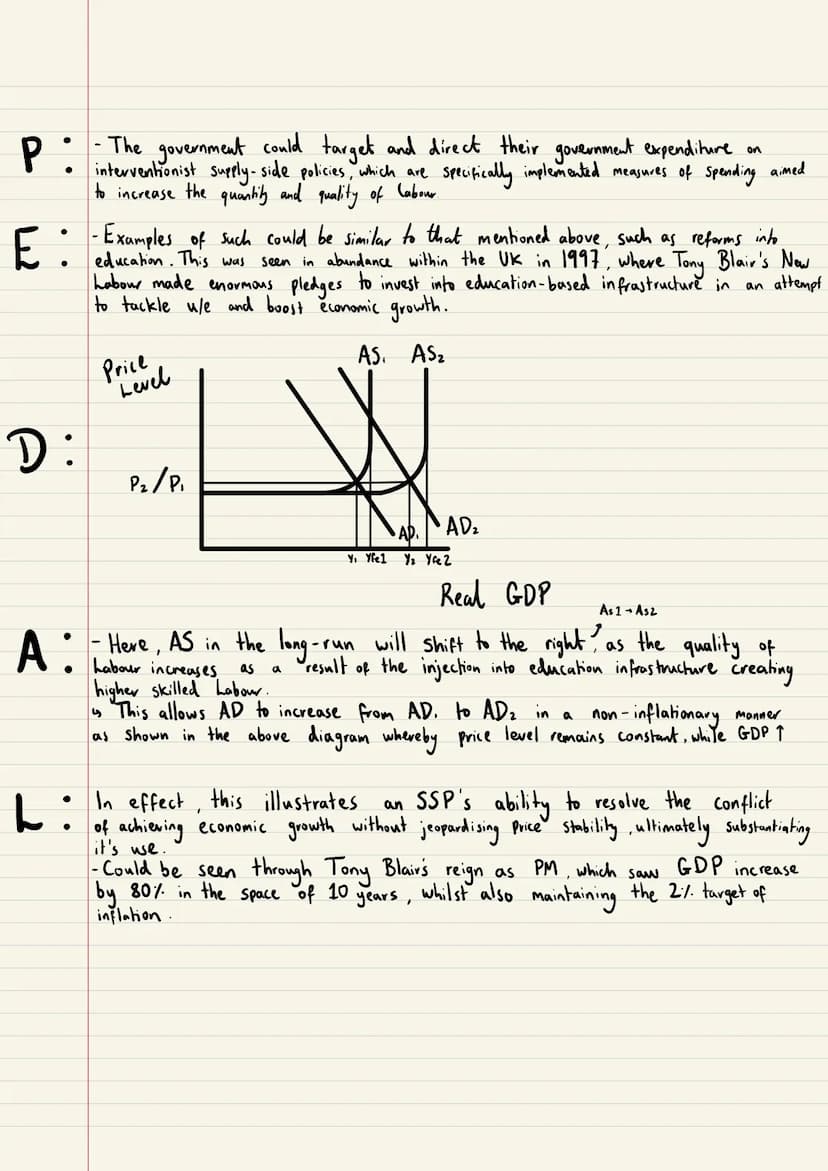 P: - The government could target and direct their government expenditure on
interventionist supply-side policies, which are specifically implemented measures of spending aimed
to increase the quantity and quality of labour
E: - Examples of such could be similar to that mentioned above, such as reforms into
education. This was seen in abundance within the UK in 1997, where Tony Blair's New
Labour made enormous pledges to invest into education-based infrastructure in an attempt
to tackle u/e and boost economic growth.
Price
Level
AS₁ AS₂
D:
P₂/P₁
AD₁ AD₂
Y₁ Yfe1 Y₂ Yfe2
Real GDP
As1→As2
A: - Here, AS in the long-run will shift to the right, as the quality of
labour increases as a result of the injection into education infrastructure creating
higher skilled labour.
↳ This allows AD to increase from AD₁ to AD₂ in a non-inflationary manner
as shown in the above diagram whereby price level remains constant, while GDP ↑
L: In effect, this illustrates an SSP's ability to resolve the conflict
of achieving economic growth without jeopardising price stability, ultimately substantiating
it's use.
- Could be seen through Tony Blair's reign as PM, which saw GDP increase
by 80% in the space of 10 years, whilst also maintaining the 2% target of
inflation.